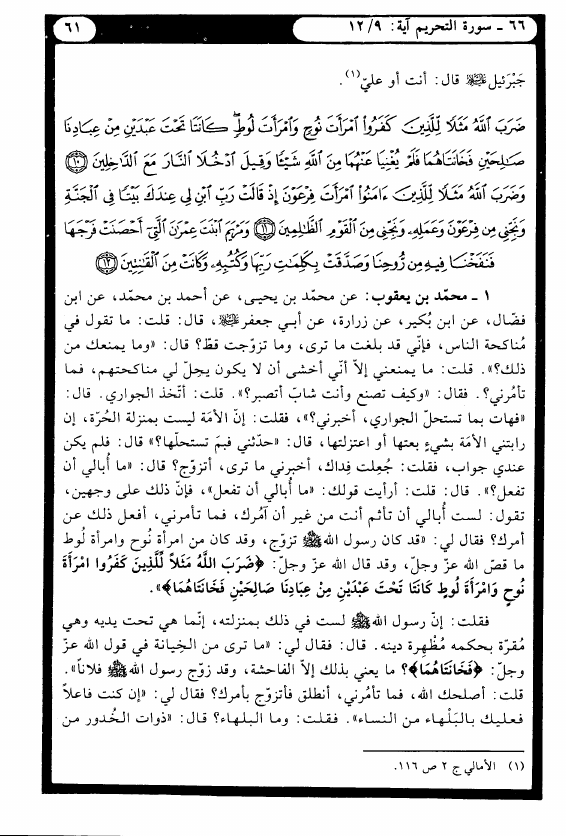 ٦٦ ـ سورة التحريم آية: ١٢/٩
٦١
جَبْرَئيل عليه السلام قال: أنت أو عليّ(١).
ضَرَبَ اللَّهُ مَثَلًا لِّلَّذِينَ كَفَرُوا امْرَأَتَ نُوحٍ وَامْرَأَتَ لُوطٍ كَانَتَا تَحْتَ عَبْدَيْنِ مِنْ عِبَادِنَا
صَالِحَيْنِ فَخَانَتَاهُمَا فَلَمْ يُغْنِيَا عَنْهُمَا مِنَ اللَّهِ شَيْئًا وَقِيلَ ادْخُلَا النَّارَ مَعَ الدَّاخِلِينَ ﴿١٠﴾
وَضَرَبَ اللَّهُ مَثَلًا لِّلَّذِينَ ءَامَنُوا امْرَأَتَ فِرْعَوْنَ إِذْ قَالَتْ رَبِّ ابْنِ لِي عِندَكَ بَيْتًا فِي الْجَنَّةِ
وَنَجِّنِي مِن فِرْعَوْنَ وَعَمَلِهِ وَنَجِّنِي مِنَ الْقَوْمِ الظَّالِمِينَ ﴿١١﴾ وَمَرْيَمَ ابْنَتَ عِمْرَانَ الَّتِي أَحْصَنَتْ فَرْجَهَا
فَنَفَخْنَا فِيهِ مِن رُّوحِنَا وَصَدَّقَتْ بِكَلِمَاتِ رَبِّهَا وَكُتُبِهِ وَكَانَتْ مِنَ الْقَانِتِينَ ﴿١٢﴾
١ ـ محمّد بن يعقوب: عن محمّد بن يحيى، عن أحمد بن محمّد، عن ابن
فضّال، عن ابن بُكير، عن زرارة، عن أبـي جعفر عليه السلام، قال: قلت: ما تقول في
مُناكحة الناس، فإنّي قد بلغت ما ترى، وما تزوّجت قطّ؟ قال: «وما يمنعك من
ذلك؟». قلت: ما يمنعني إلاّ أنّي أخشى أن لا يكون يحِلّ لي مناكحتهم، فما
تأمرني؟. فقال: «وكيف تصنع وأنت شابّ أتصبر؟». قلت: أتّخذ الجواري. قال:
«فهات بما تستحلّ الجواري، أخبرني؟»، فقلت: إنّ الأمَة ليست بمنزلة الحُرّة، إن
رابتني الأمَة بشيءٍ بعتها أو اعتزلتها، قال: «حدّثني فبمَ تستحلّها؟» قال: فلم يكن
عندي جواب، فقلت: جُعِلت فِداك، أخبرني ما ترى، أتزوّج؟ قال: «ما أُبالي أن
تفعل؟». قال: قلت: أرأيت قولك: «ما أُبالي أن تفعل»، فإنّ ذلك على وجهين،
تقول: لست أُبالي أن تأثم أنت من غير أن آمرك، فما تأمرني، أفعل ذلك عن
أمرك؟ فقال لي: «قد كان رسول الله ﷺ تزوّج، وقد كان من امرأة نُوح وامرأة لُوط
ما قصّ الله عزّ وجلّ، وقد قال الله عزّ وجلّ: ﴿ضَرَبَ اللَّهُ مَثَلاً لِّلَّذِينَ كَفَرُوا امْرَأَةَ
نُوحٍ وَامْرَأَةَ لُوطٍ كَانَتَا تَحْتَ عَبْدَيْنِ مِنْ عِبَادِنَا صَالِحَيْنِ فَخَانَتَاهُمَا﴾».
فقلت: إنّ رسول الله ﷺ لست في ذلك بمنزلته، إنّما هي تحت يديه وهي
مُقرّة بحكمه مُظْهِرة دينه. قال: فقال لي: «ما ترى من الخِيانة في قول الله عزّ
وجلّ: ﴿فَخَانَتَاهُمَا﴾؟ ما يعني بذلك إلاّ الفاحشة، وقد زوّج رسول الله ﷺ فلاناً».
قلت: أصلحك الله، فما تأمرني، أنطلق فأتزوّج بأمرك؟ فقال لي: «إن كنت فاعلاً
فعليك بالبَلْهاء من النساء». فقلت: وما البلهاء؟ قال: «ذوات الخُدور من
(١) الأمالي ج ٢ ص ١١٦.